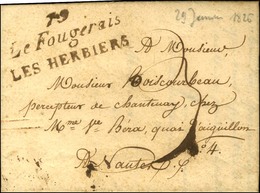 79
Le Fougerais
LES HERBIERS
29 Janvier 1826
A Monsieur,
Monsieur Boiscourbeau,
percepteur de chantenay, chez
Mme Ve Bóra, quai d'aiguillon
n° 4.
A Nantes